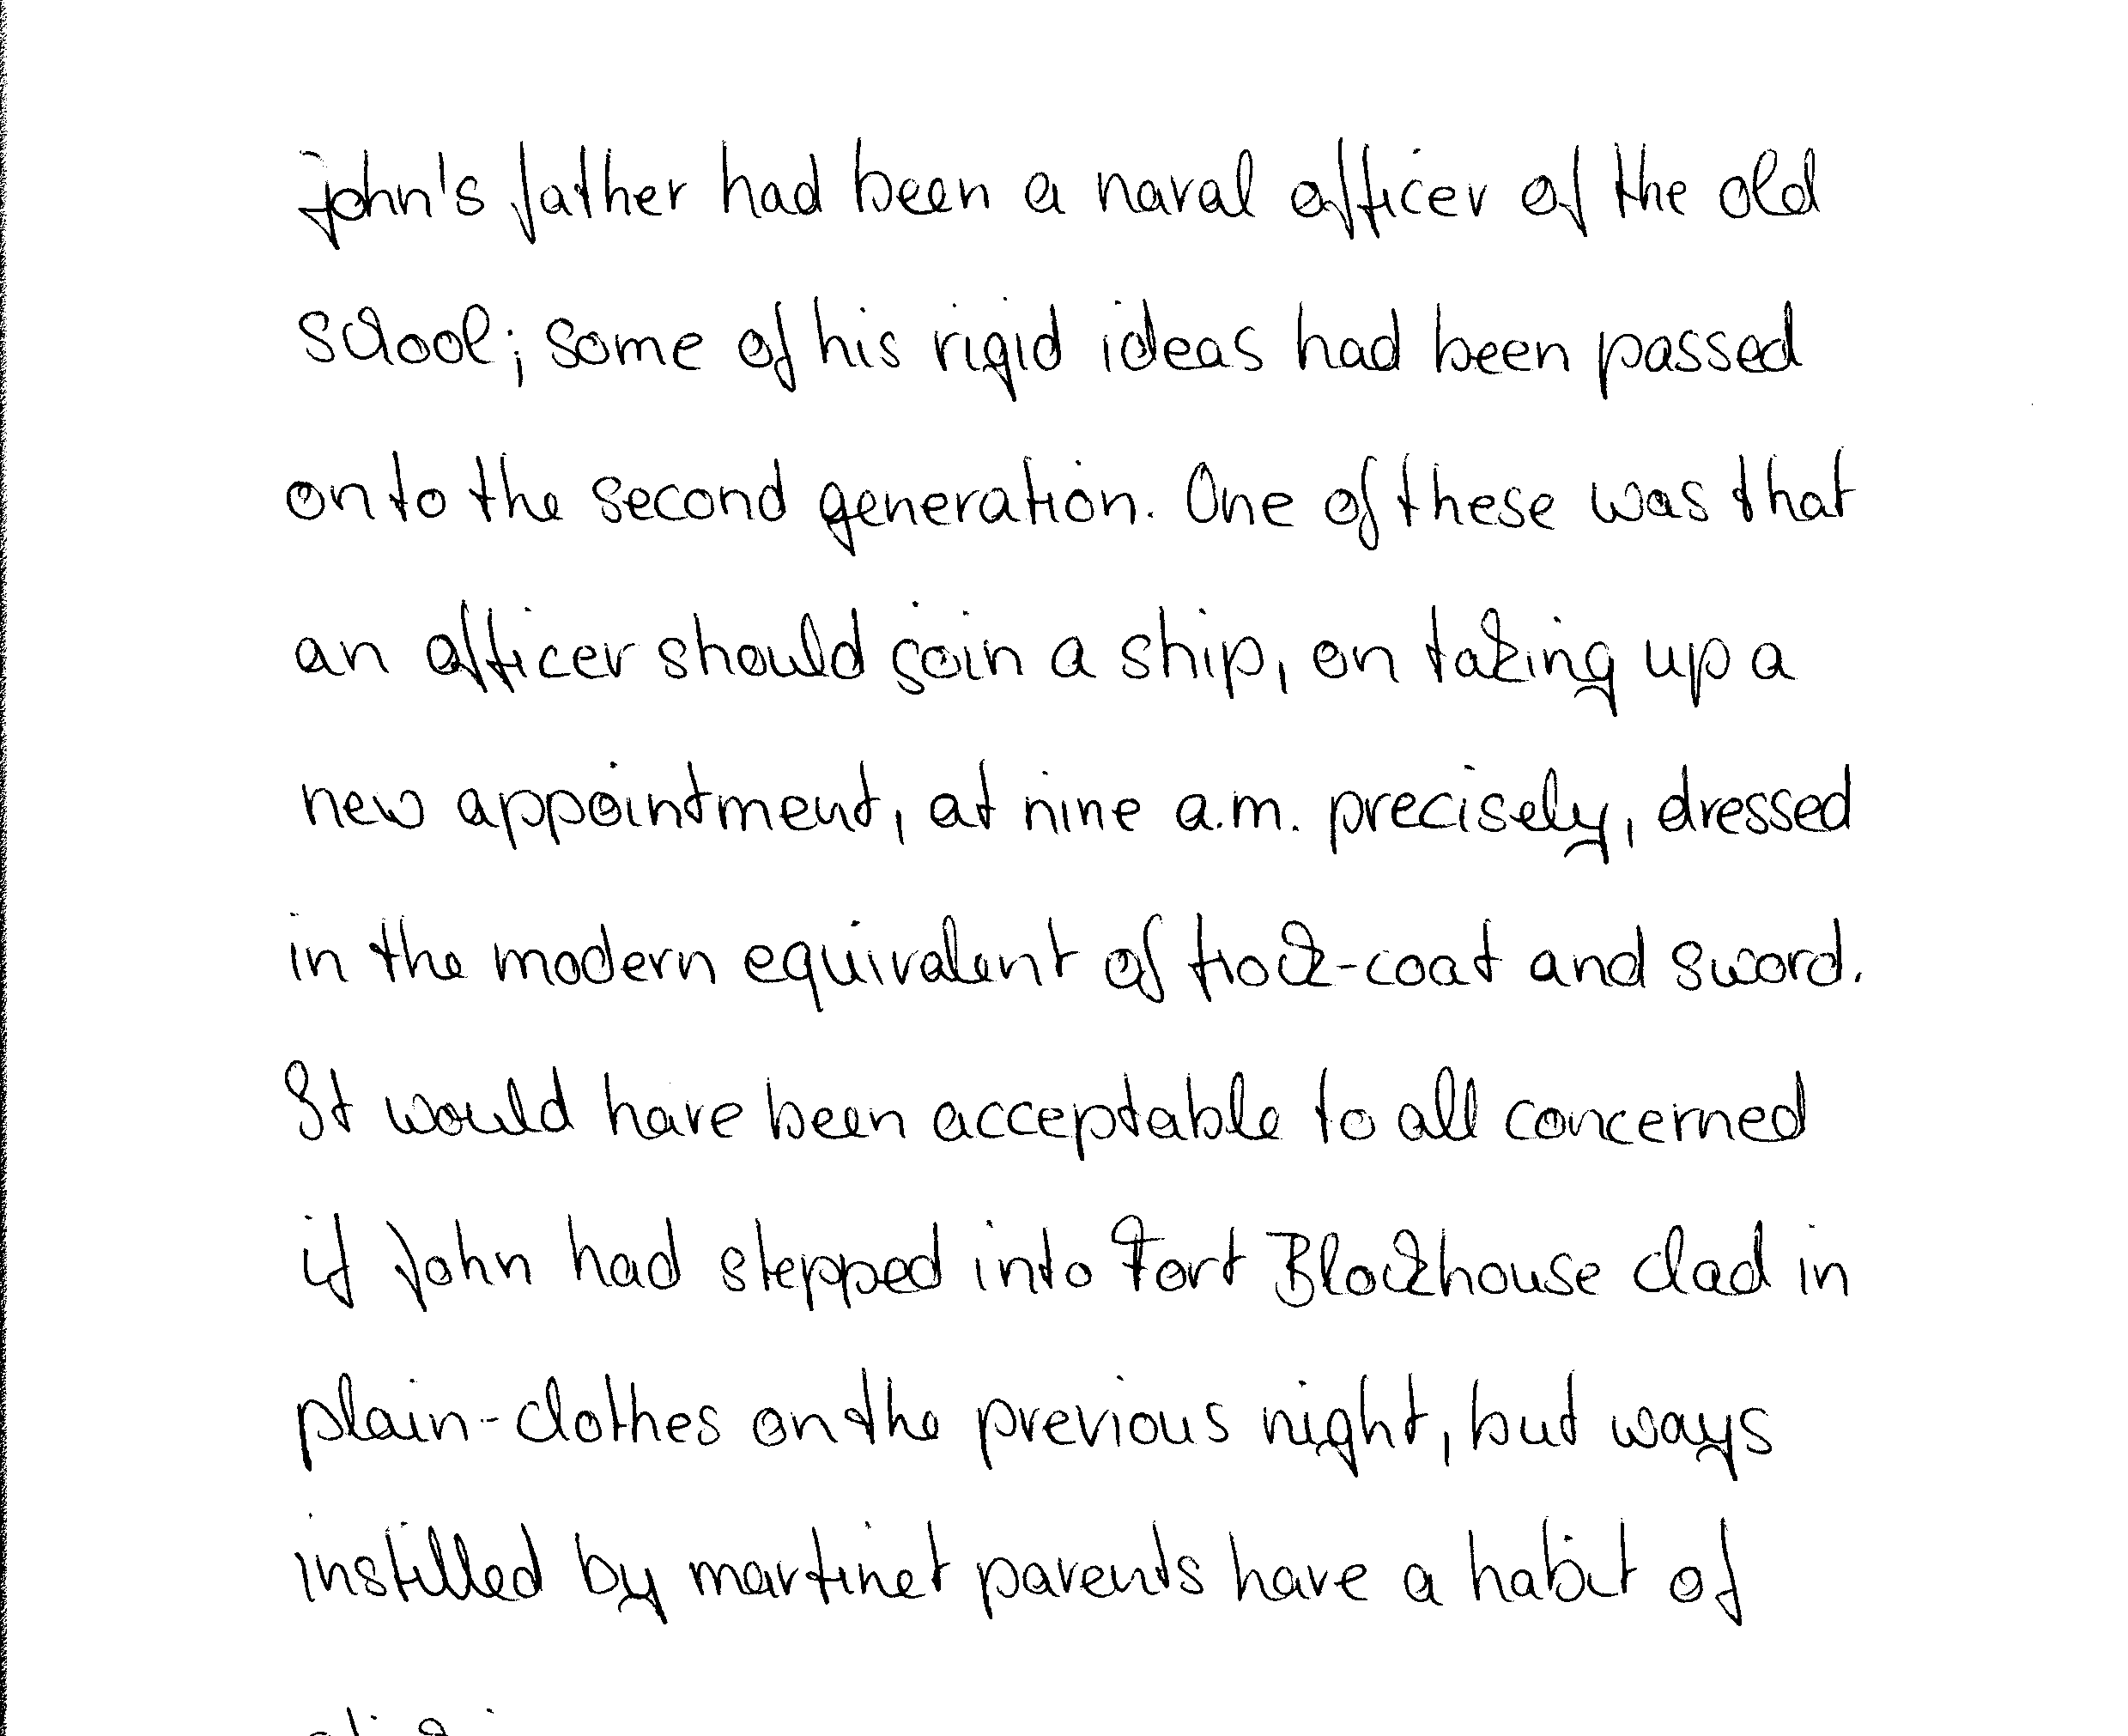 John's father had been a naval officer of the old
school; some of his rigid ideas had been passed
on to the second generation. One of these was that
an officer should join a ship, on taking up a
new appointment, at nine a.m. precisely, dressed
in the modern equivalent of frock-coat and sword.
It would have been acceptable to all concerned
if John had stepped into Fort Blockhouse clad in
plain-clothes on the previous night, but ways
instilled by martinet parents have a habit of